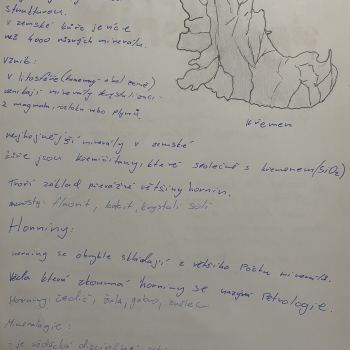 strukturou.
V zemské kůře je více
než 4000 různých minerálů.
Vznik:
v litosféře (kamenný obal země)
vznikají minerály krystalizací
z magmatu, roztoku nebo plynů.
křemen
nejhojnější minerály v zemské
kůře jsou křemičitany, které společně s křemenem (SiO2)
Tvoří základ převážné většiny hornin.
kalcit, krystali soli
Horniny:
horniny se obvykle skládají z většího počtu minerálů.
Věda která zkoumá horniny se nazývá Petrologie.
Horniny: čedič, žula, gabro, znělec
Mineralogie:
- je vědecká disciplína